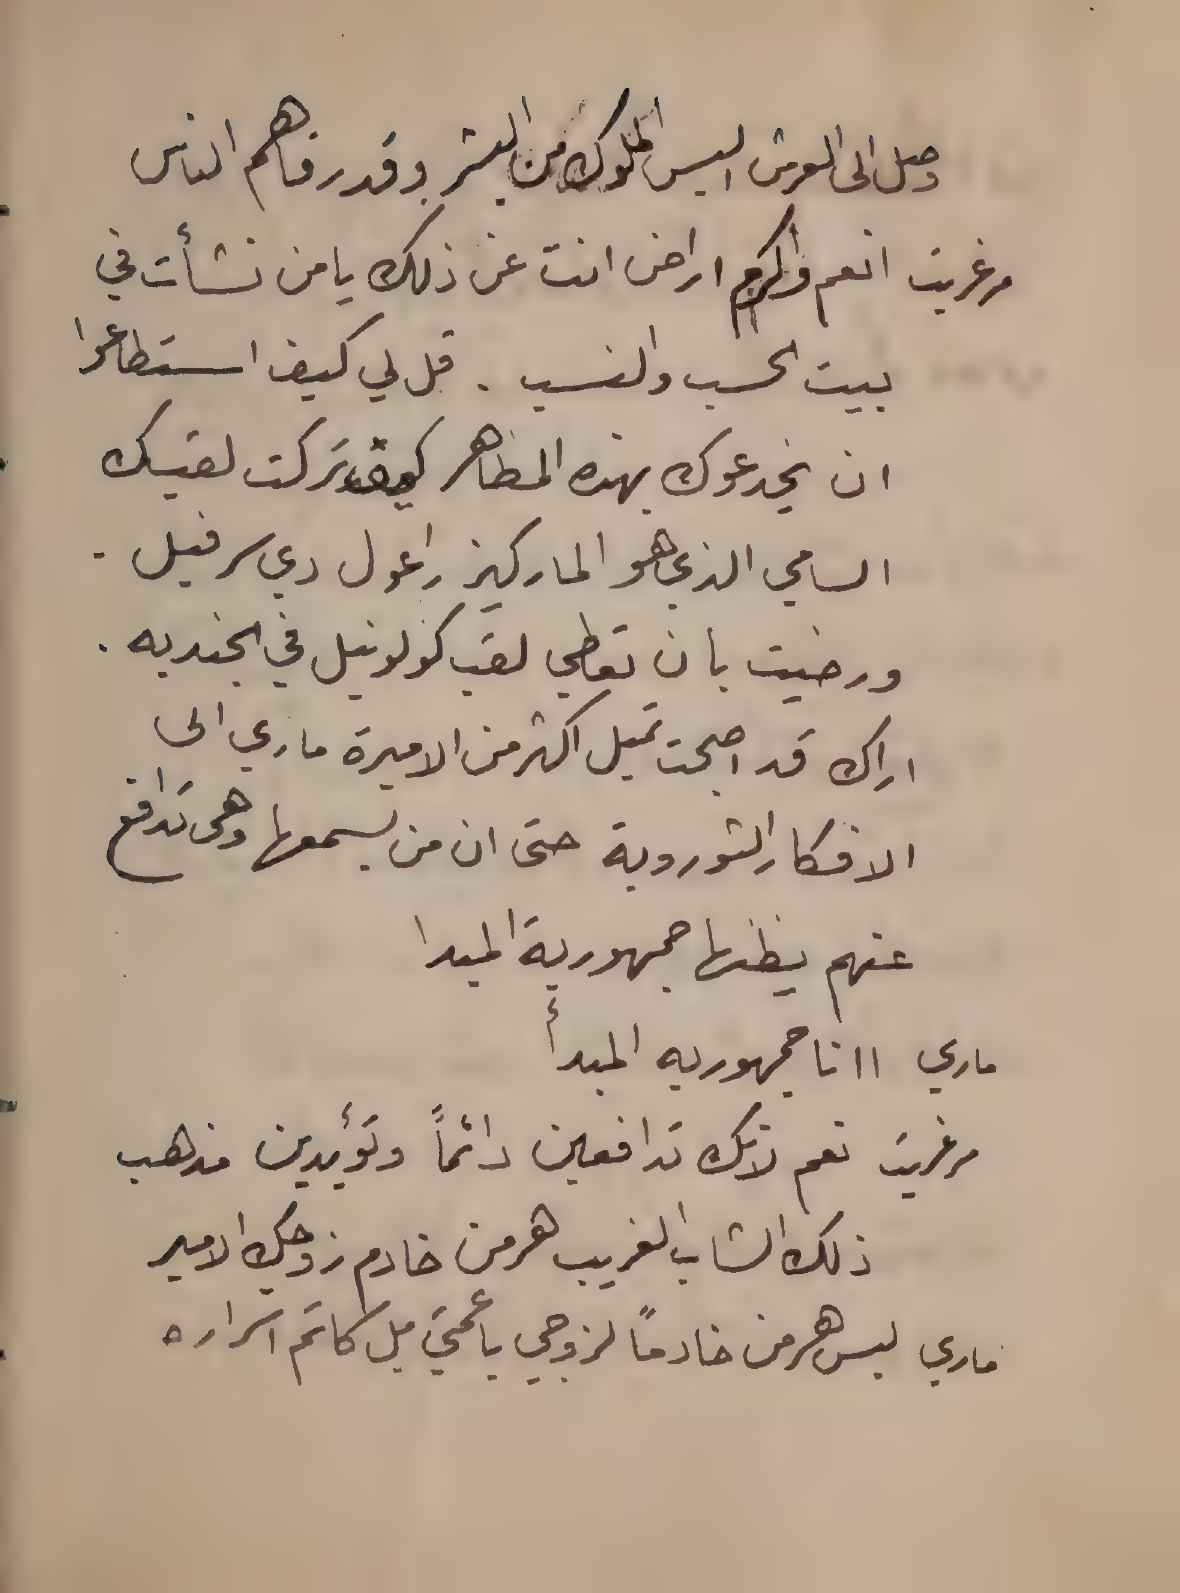 وصل الى العرش اليس الملوك من البشر وقد رقاهم الناس
مرغريت انعم واكرم اراض انت عن ذلك يا من نشأت في
بيت الحسب والنسب . قل لي كيف استطاعوا
ان يخدعوك بهذه المظاهر كيف تركت لقبك
السامي الذي هو الماركيز راءول دي سرفيل .
ورضيت بان تعطي لقب كولونيل في الجنديه .
اراك قد اصبحت تميل اكثر من الاميرة ماري الى
الافكار الثوروية حتى ان من يسمعها وهى تدافع
عنهم يظنها جمهورية المبدا
ماري اانا جمهوريه المبدأ
مرغريت نعم لانك تدافعين دائماً وتؤيدين مذهب
ذلك الشاب الغريب هرمن خادم زوجك الامير
ماري ليس هرمن خادمًا لزوجي يا عمتي بل كاتم اسراره